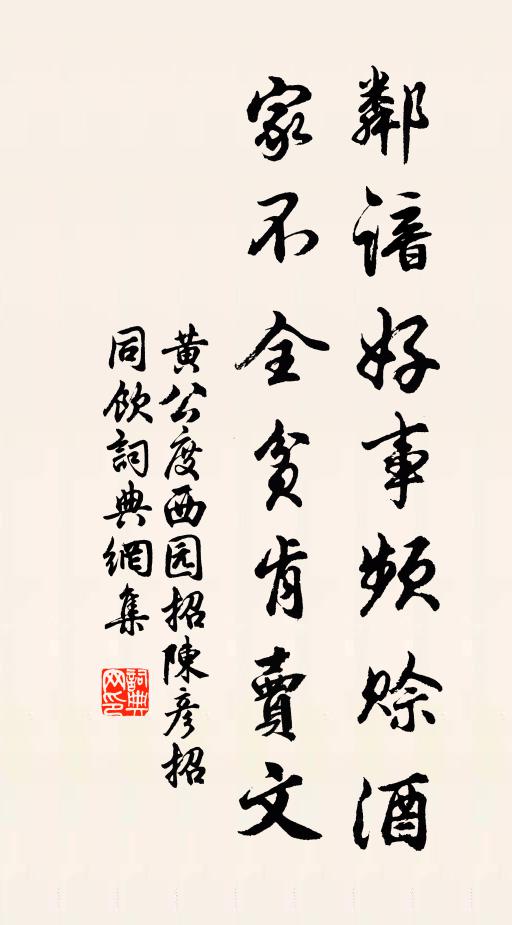 鄰諳好事頻賒酒
家不全貧肯賣文
黃公度西园招陳彥招
同飲詞典網集
詞典网印